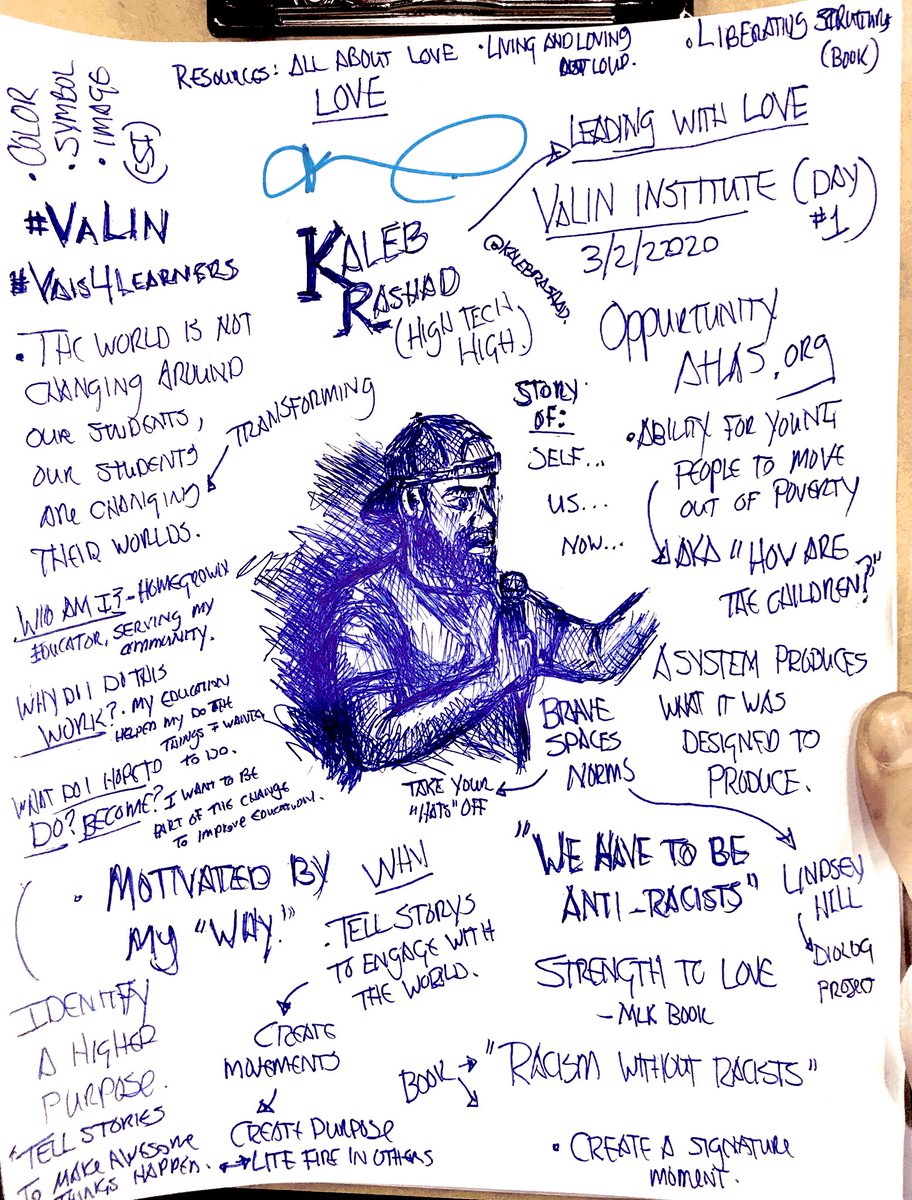 RESOURCES: ALL ABOUT LOVE
• LIVING AND LOVING
OUT LOUD.
• LIBERATING STRUCTURES
(BOOK)
LOVE
• COLOR
• SYMBOL
• IMAGE
(CSI)
LEADING WITH LOVE
VALIN INSTITUTE (DAY
#1)
3/2/2020
#VALIN
#VAIS4LEARNERS
KALEB
RASHAD
(HIGH TECH
HIGH.)
@KALEBRASHAD.
OPPURTUNITY
ATLAS.ORG
• ABILITY FOR YOUNG
PEOPLE TO MOVE
OUT OF POVERTY
AKA "HOW ARE
THE CHILDREN?"
• THE WORLD IS NOT
CHANGING AROUND
OUR STUDENTS,
OUR STUDENTS
ARE CHANGING
THEIR WORLDS.
TRANSFORMING
STORY
OF:
SELF...
US...
NOW...
WHO AM I? - HOMEGROWN
EDUCATOR, SERVING MY
COMMUNITY.
WHY DO I DO THIS
WORK? - MY EDUCATION
HELPED MY DO THE
THINGS I WANTED
TO DO.
WHAT DO I HOPE TO
DO? BECOME? I WANT TO BE
PART OF THE CHANGE
TO IMPROVE EDUCATION.
A SYSTEM PRODUCES
WHAT IT WAS
DESIGNED TO
PRODUCE.
BRAVE
SPACES
NORMS
TAKE YOUR
"HATS" OFF
LINDSEY
HILL
DIOLOG
PROJECT
• MOTIVATED BY
MY "WHY."
WHY
• TELL STORYS
TO ENGAGE WITH
THE WORLD.
CREATE
MOVEMENTS
CREATE PURPOSE
LITE FIRE IN OTHERS
"WE HAVE TO BE
ANTI-RACISTS"
STRENGTH TO LOVE
- MLK BOOK
BOOK
"RACISM WITHOUT RACISTS"
• CREATE A SIGNATURE
MOMENT.
IDENTIFY
A HIGHER
PURPOSE.
TELL STORIES
TO MAKE AWESOME
THINGS HAPPEN.